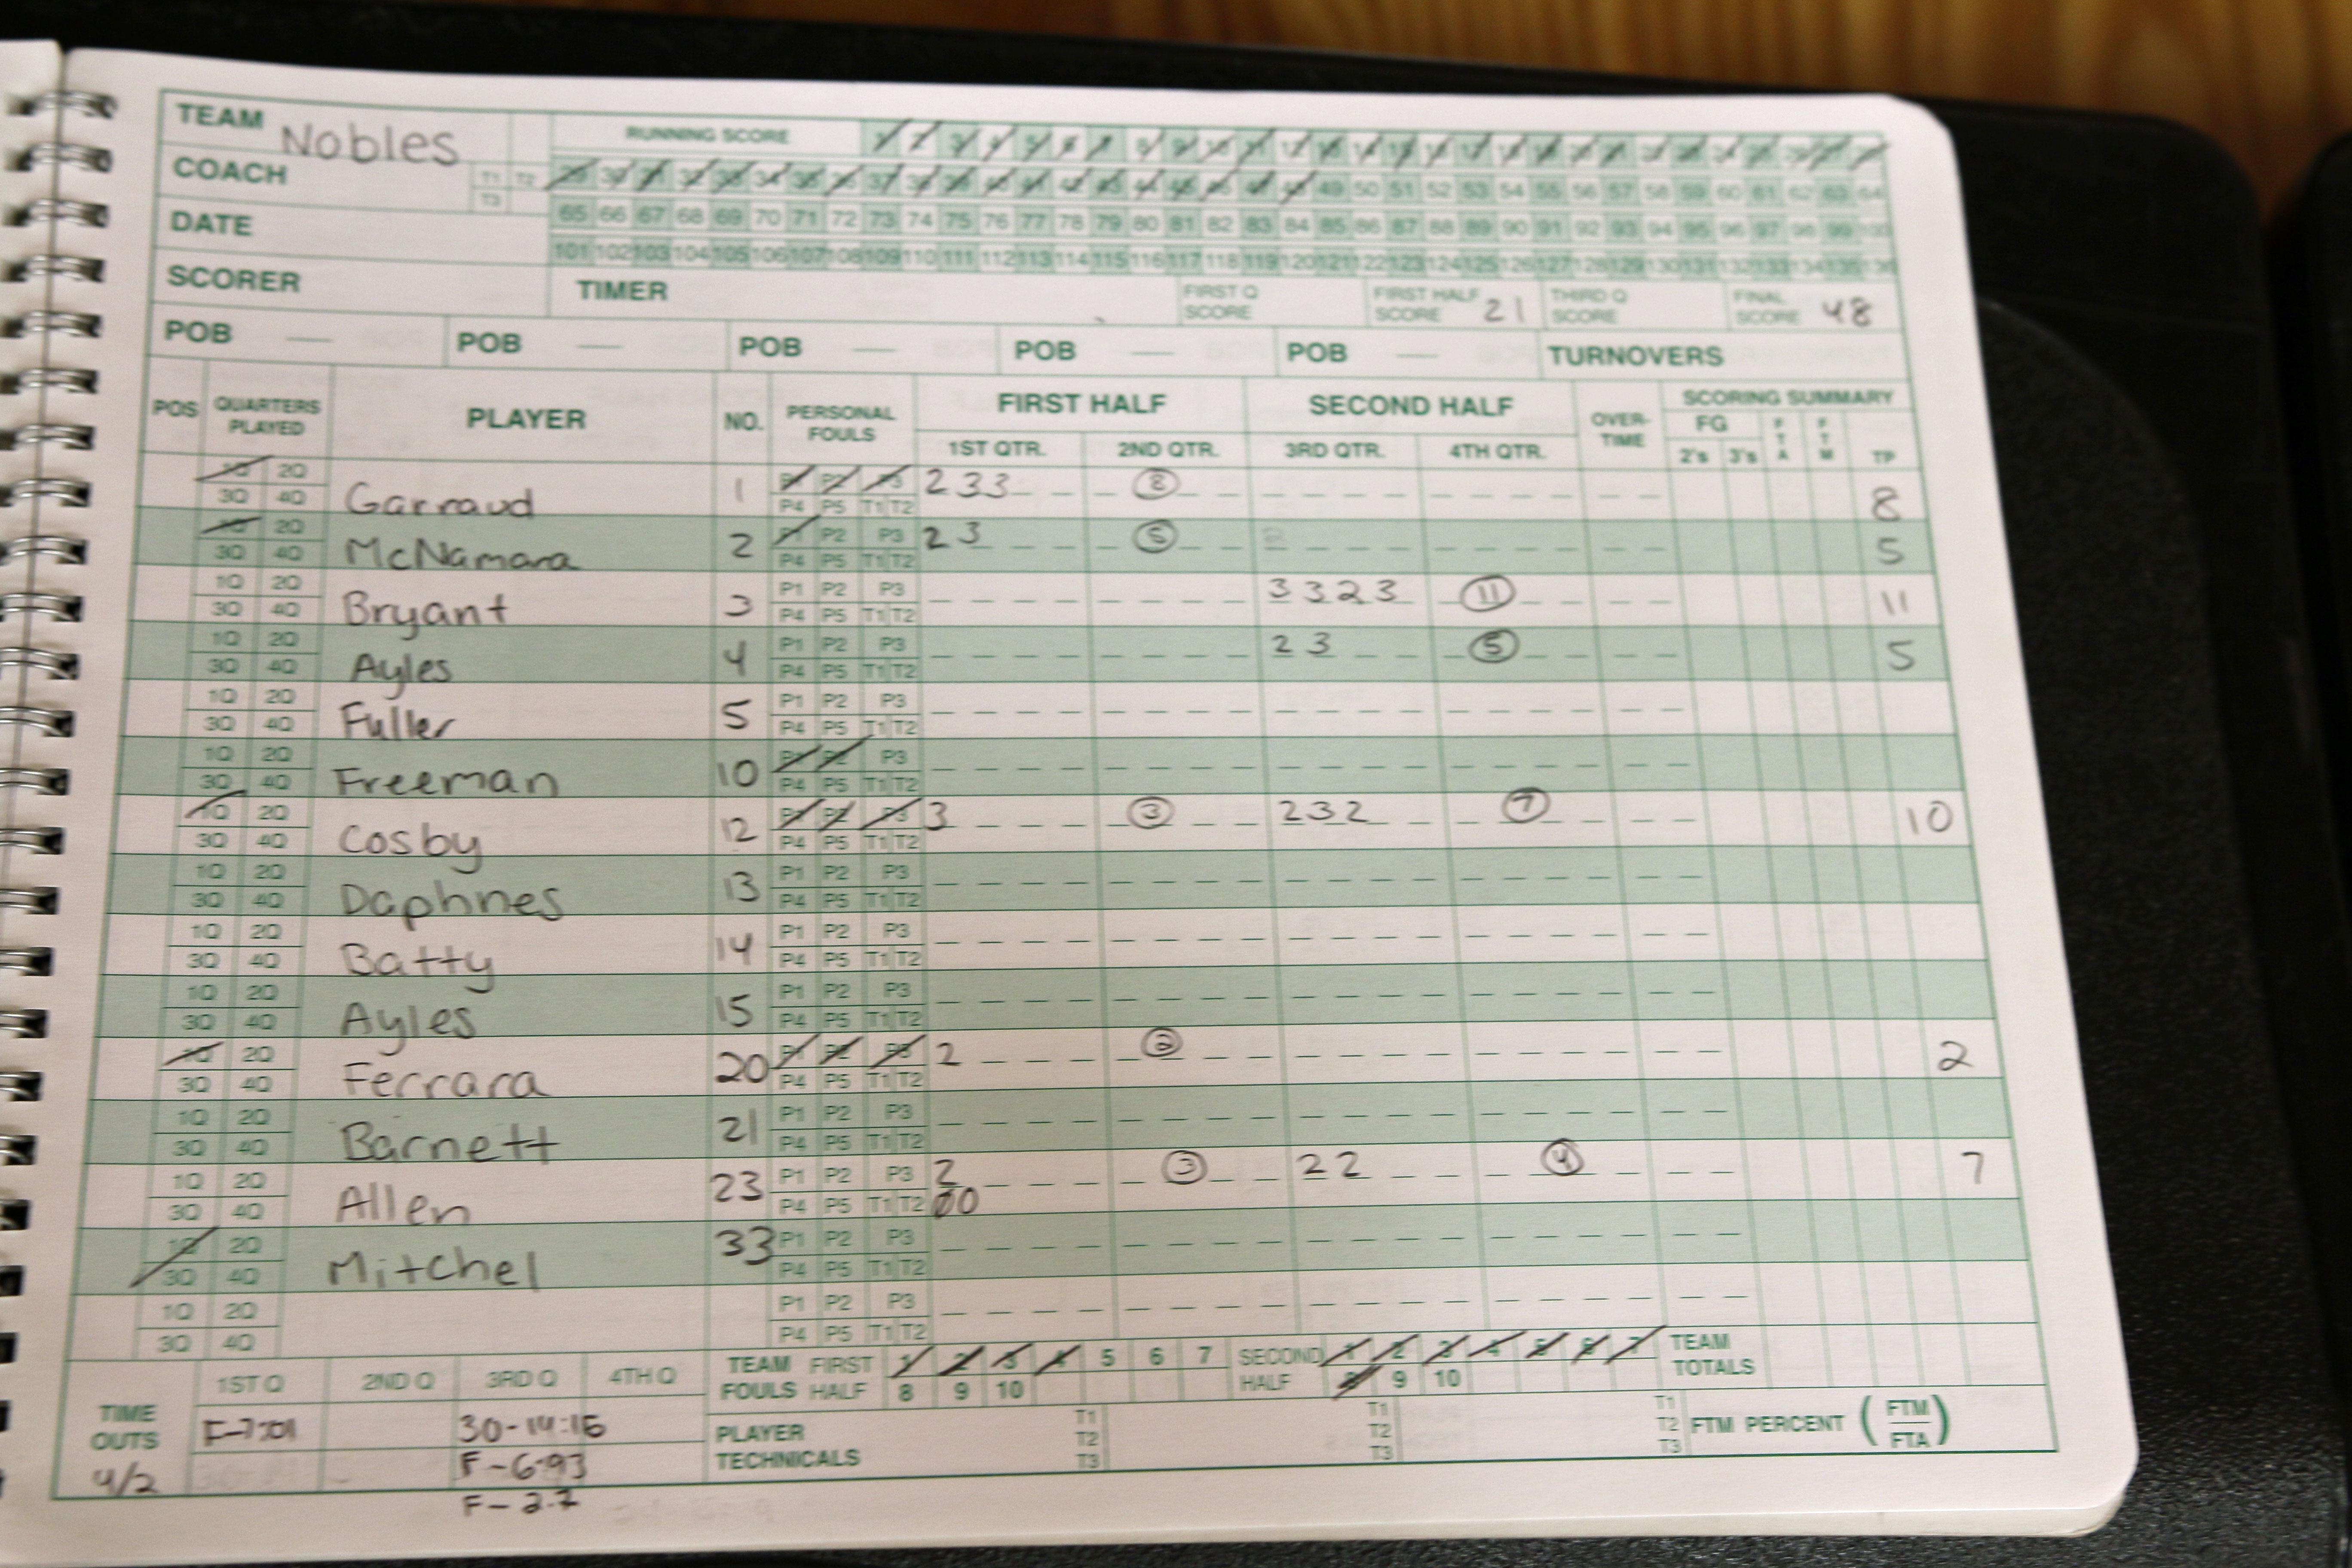 TEAM Nobles RUNNING SCORE
COACH T1 T2 29 30 31 32 33 34 35 36 37 38 39 40 41 42 43 44 45 46 47 48 49 50 51 52 53 54 55 56 57 58 59 60 61 62 63 64
T3
DATE 65 66 67 68 69 70 71 72 73 74 75 76 77 78 79 80 81 82 83 84 85 86 87 88 89 90 91 92 93 94 95 96 97 98 99 100
101 102 103 104 105 106 107 108 109 110 111 112 113 114 115 116 117 118 119 120 121 122 123 124 125 126 127 128 129 130 131 132 133 134 135 136
SCORER TIMER FIRST Q SCORE FIRST HALF SCORE 21 THIRD Q SCORE FINAL SCORE 48
POB — POB — POB — POB — POB — TURNOVERS
POS QUARTERS PLAYED PLAYER NO. PERSONAL FOULS FIRST HALF SECOND HALF OVER-TIME SCORING SUMMARY
1ST QTR. 2ND QTR. 3RD QTR. 4TH QTR. FG 2's 3's FTA FTM TP
1Q 2Q Garraud 1 P1 P2 P3 2 3 3 8 8
3Q 4Q P4 P5 T1 T2
1Q 2Q McNamara 2 P1 P2 P3 2 3 5 5
3Q 4Q P4 P5 T1 T2
1Q 2Q Bryant 3 P1 P2 P3 3 3 2 3 11 11
3Q 4Q P4 P5 T1 T2
1Q 2Q Ayles 4 P1 P2 P3 2 3 5 5
3Q 4Q P4 P5 T1 T2
1Q 2Q Fuller 5 P1 P2 P3
3Q 4Q P4 P5 T1 T2
1Q 2Q Freeman 10 P1 P2 P3
3Q 4Q P4 P5 T1 T2
1Q 2Q Cosby 12 P1 P2 P3 3 3 2 3 2 7 10
3Q 4Q P4 P5 T1 T2
1Q 2Q Daphnes 13 P1 P2 P3
3Q 4Q P4 P5 T1 T2
1Q 2Q Batty 14 P1 P2 P3
3Q 4Q P4 P5 T1 T2
1Q 2Q Ayles 15 P1 P2 P3
3Q 4Q P4 P5 T1 T2
1Q 2Q Ferrara 20 P1 P2 P3 2 2 2
3Q 4Q P4 P5 T1 T2
1Q 2Q Barnett 21 P1 P2 P3
3Q 4Q P4 P5 T1 T2
1Q 2Q Allen 23 P1 P2 P3 2 3 2 2 4 7
3Q 4Q P4 P5 T1 T2
1Q 2Q Mitchel 33 P1 P2 P3
3Q 4Q P4 P5 T1 T2
1Q 2Q P1 P2 P3
3Q 4Q P4 P5 T1 T2
1ST Q 2ND Q 3RD Q 4TH Q TEAM FOULS FIRST HALF 1 2 3 4 5 6 7 SECOND HALF 1 2 3 4 5 6 7 TEAM TOTALS
8 9 10 8 9 10
TIME OUTS 30-14:16 PLAYER TECHNICALS T1 T2 T3 T1 T2 T3 T1 T2 T3 FTM PERCENT (FTM/FTA)
4/2
F-2.7